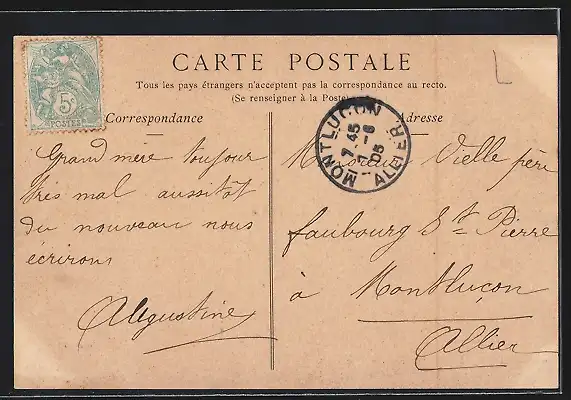 CARTE POSTALE
Tous les pays étrangers n'acceptent pas la correspondance au recto.
(Se renseigner à la Poste)
Correspondance
Adresse
5c
POSTES
MONTLUCON
7-45
7-6
05
ALLIER
Grand mère toujour
très mal aussitot
du nouveau nous
écrirons
Augustine
Monsieur Vielle père
faubourg St Pierre
à Montluçon
Allier